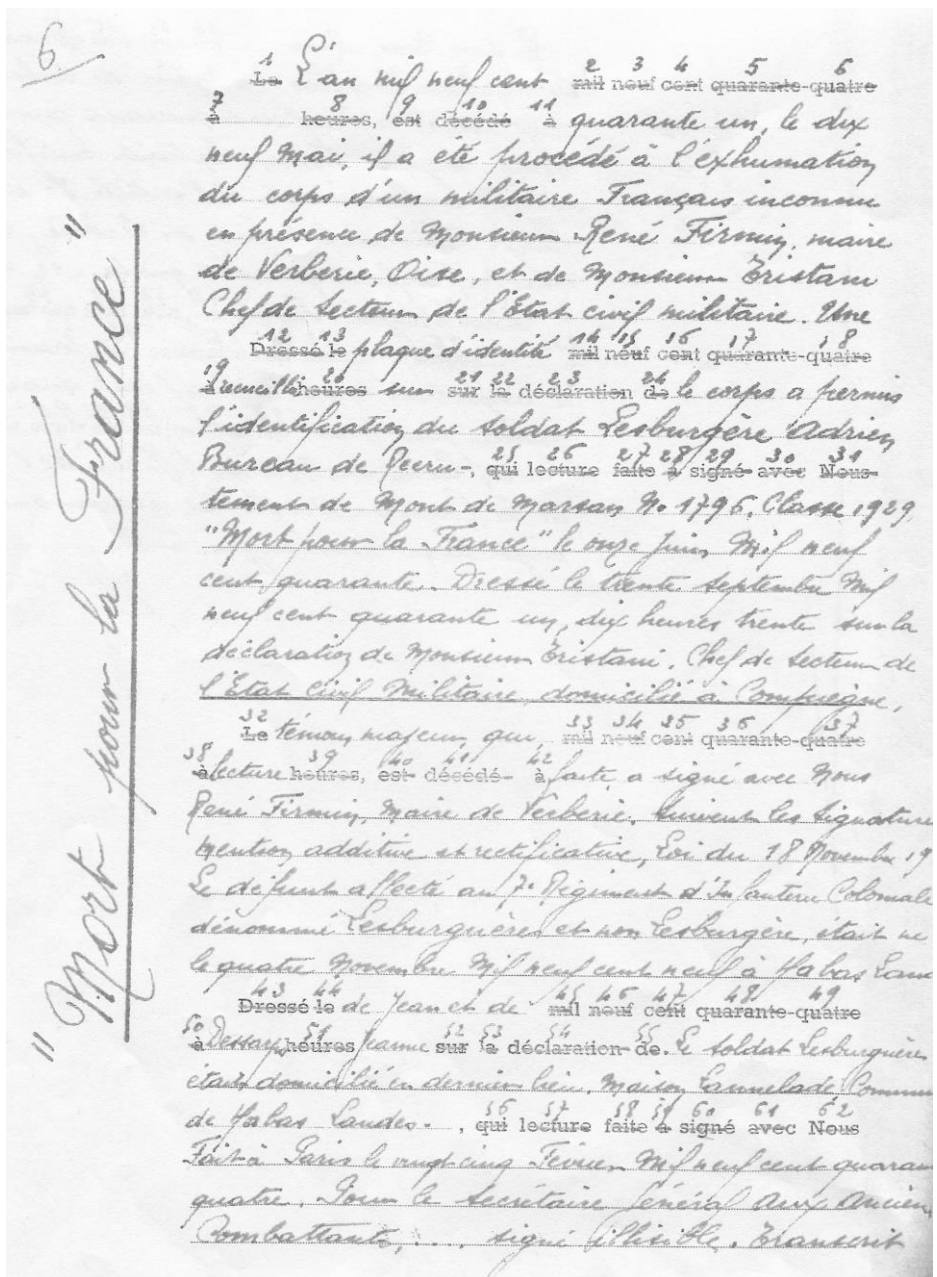 6
1 2 3 4 5 6
Le L'an mil neuf cent mil neuf cent quarante-quatre
7 8 9 10 11
à heures, est décédé à quarante un, le dix
neuf Mai, il a été procédé à l'exhumation
du corps d'un militaire Français inconnu
en présence de Monsieur René Firmin, maire
de Verberie, Oise, et de Monsieur Tristani
Chef de Secteur de l'Etat civil militaire. Une
12 13 14 15 16 17 18
Dressé le plaque d'identité mil neuf cent quarante-quatre
19 20 21 22 23 24
à recueillie heures sur sur la déclaration de le corps a permis
l'identification du soldat Lesburgère Adrien
25 26 27 28 29 30 31
Bureau de Recru-, qui lecture faite a signé avec Nous
tement de Mont de Marsan No 1796, Classe 1929,
"Mort pour la France" le onze juin Mil neuf
cent quarante. Dressé le trente septembre Mil
neuf cent quarante un, dix heures trente sur la
déclaration de Monsieur Tristani, Chef de Secteur de
l'Etat Civil Militaire, domicilié à Compiègne,
32 33 34 35 36 37
Le témoin majeur, qui, mil neuf cent quarante-quatre
38 39 40 41 42
à lecture heures, est décédé à faite, a signé avec Nous
René Firmin, Maire de Verberie. Suivent les signature
Mention additive et rectificative, Loi du 18 Novembre 19
Le défunt affecté au 7e Régiment d'Infanterie Coloniale
dénommé Lesburguères et non Lesburgère, était né
le quatre Novembre Mil neuf cent neuf à Habas Land
43 44 45 46 47 48 49
Dressé le de Jean et de mil neuf cent quarante-quatre
50 51 52 53 54 55
à heures Jeanne sur la déclaration de. Le soldat Lesburguères
était domicilié en dernier lieu, Maison Lannelade, Commun
56 57 58 59 60 61 62
de Habas Landes. , qui lecture faite a signé avec Nous
Fait à Paris le vingt cinq Février Mil neuf cent quaran
quatre. Pour le Secrétaire Général aux Anciens
Combattants, .... signé illisible. Transcrit
"Mort pour la France"